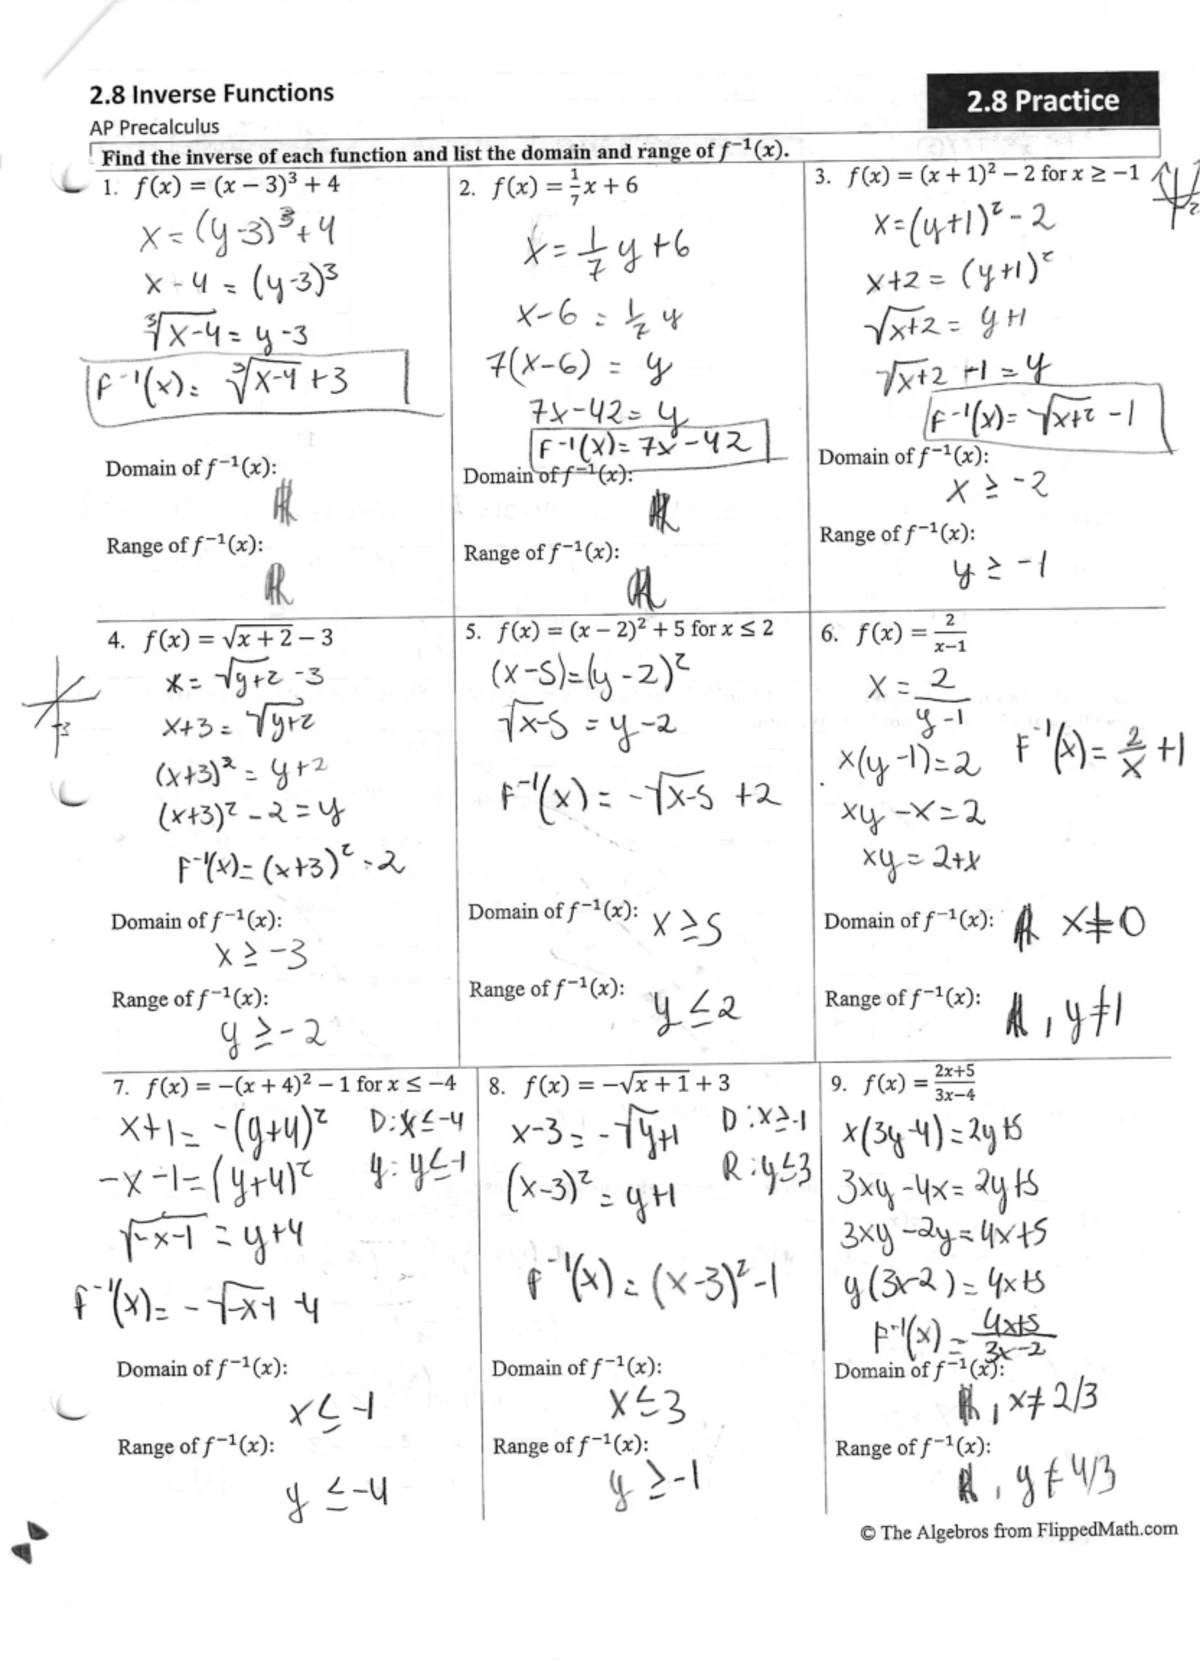 2.8 Inverse Functions
2.8 Practice
AP Precalculus
Find the inverse of each function and list the domain and range of f⁻¹(x).
1. f(x) = (x − 3)³ + 4
x = (y-3)³ + 4
x - 4 = (y-3)³
∛(x-4) = y - 3
F⁻¹(x) = ∛(x-4) + 3
Domain of f⁻¹(x):
ℝ
Range of f⁻¹(x):
ℝ
2. f(x) = 1/7 x + 6
x = 1/7 y + 6
x-6 = 1/7 y
7(x-6) = y
7x-42 = y
F⁻¹(x) = 7x - 42
Domain of f⁻¹(x):
ℝ
Range of f⁻¹(x):
ℝ
3. f(x) = (x + 1)² − 2 for x ≥ −1
x = (y+1)² - 2
x+2 = (y+1)²
√(x+2) = y+1
√(x+2) +1 = y
F⁻¹(x) = √(x+2) - 1
Domain of f⁻¹(x):
x ≥ -2
Range of f⁻¹(x):
y ≥ -1
4. f(x) = √(x + 2) − 3
x = √(y+2) - 3
x+3 = √(y+2)
(x+3)² = y+2
(x+3)² - 2 = y
F⁻¹(x) = (x+3)² - 2
Domain of f⁻¹(x):
x ≥ -3
Range of f⁻¹(x):
y ≥ -2
5. f(x) = (x − 2)² + 5 for x ≤ 2
(x-5) = (y-2)²
√(x-5) = y-2
F⁻¹(x) = -√(x-5) + 2
Domain of f⁻¹(x): x ≥ 5
Range of f⁻¹(x): y ≤ 2
6. f(x) = 2/(x−1)
x = 2/(y-1)
x(y-1) = 2
F⁻¹(x) = 2/x + 1
xy - x = 2
xy = 2+x
Domain of f⁻¹(x): ℝ x ≠ 0
Range of f⁻¹(x): ℝ, y ≠ 1
7. f(x) = −(x + 4)² − 1 for x ≤ −4
x+1 = -(y+4)² D: x ≤ -4
-x-1 = (y+4)² y: y ≤ -1
√(-x-1) = y+4
F⁻¹(x) = -√(-x-1) -4
Domain of f⁻¹(x):
x ≤ -1
Range of f⁻¹(x):
y ≤ -4
8. f(x) = −√(x + 1) + 3
x-3 = -√(y+1) D: x ≥ -1
(x-3)² = y+1 R: y ≤ 3
F⁻¹(x) = (x-3)² - 1
Domain of f⁻¹(x):
x ≤ 3
Range of f⁻¹(x):
y ≥ -1
9. f(x) = (2x+5)/(3x−4)
x(3y-4) = 2y+5
3xy - 4x = 2y+5
3xy - 2y = 4x+5
y(3x-2) = 4x+5
F⁻¹(x) = (4x+5)/(3x-2)
Domain of f⁻¹(x):
ℝ, x ≠ 2/3
Range of f⁻¹(x):
ℝ, y ≠ 4/3
© The Algebros from FlippedMath.com